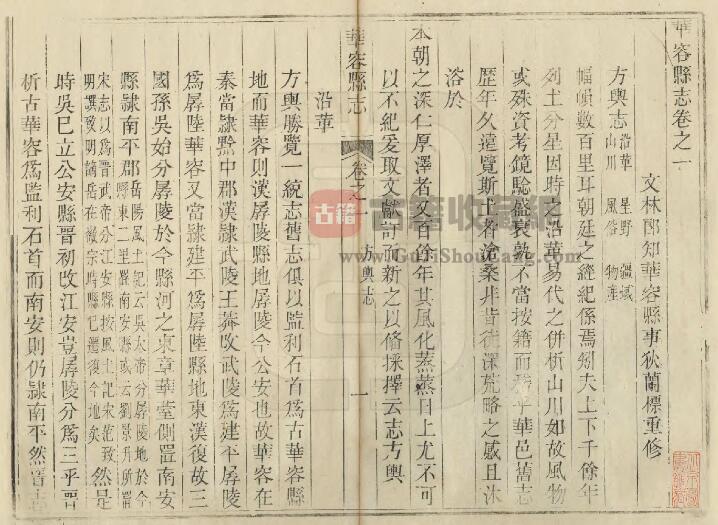 華容縣志卷之一
文林郎知華容縣事狄蘭標重修
方輿志 沿革 星野 疆域
山川 風俗 物產
幅幀數百里耳朝廷之經紀係焉矧夫上下千餘年
列土分星因時之沿革易代之併析山川如故風物
或殊資考鏡驗盛衰孰不當按籍而 乎華邑舊志
歷年久遠覽斯土者滄桑非昔徒深荒略之感且沐
浴於
本朝之深仁厚澤者又百餘年其風化蒸蒸日上尤不可
以不紀爰取文獻訂而新之以俻採擇云志方輿
華容縣志
卷之一
方輿志
一
沿革
方輿勝覽一統志舊志俱以監利石首爲古華容縣
地而華容則漢孱陵地孱陵今公安也故華容在
秦當隷黔中郡漢隷武陵王莽改武陵爲建平孱陵
爲孱陸華容又當隷建平爲孱陸縣地東漢復故三
國孫吳始分孱陵於今縣河之東章華臺側置南安
縣隷南平郡 岳陽風土記云吳大帝分孱陵地於今
縣東二里置南安縣或云劉景升所置
宋志以爲晉武帝分江安縣按風土記宋范致
明譔致明謫岳在徽宗時縣已還復今地矣 然是
時吳已立公安縣晉初改江安豈孱陵分爲三乎晋
析古華容爲監利石首而南安則仍隷南平然晋古
古籍
古籍收藏網
www.GuJiShouCang.com